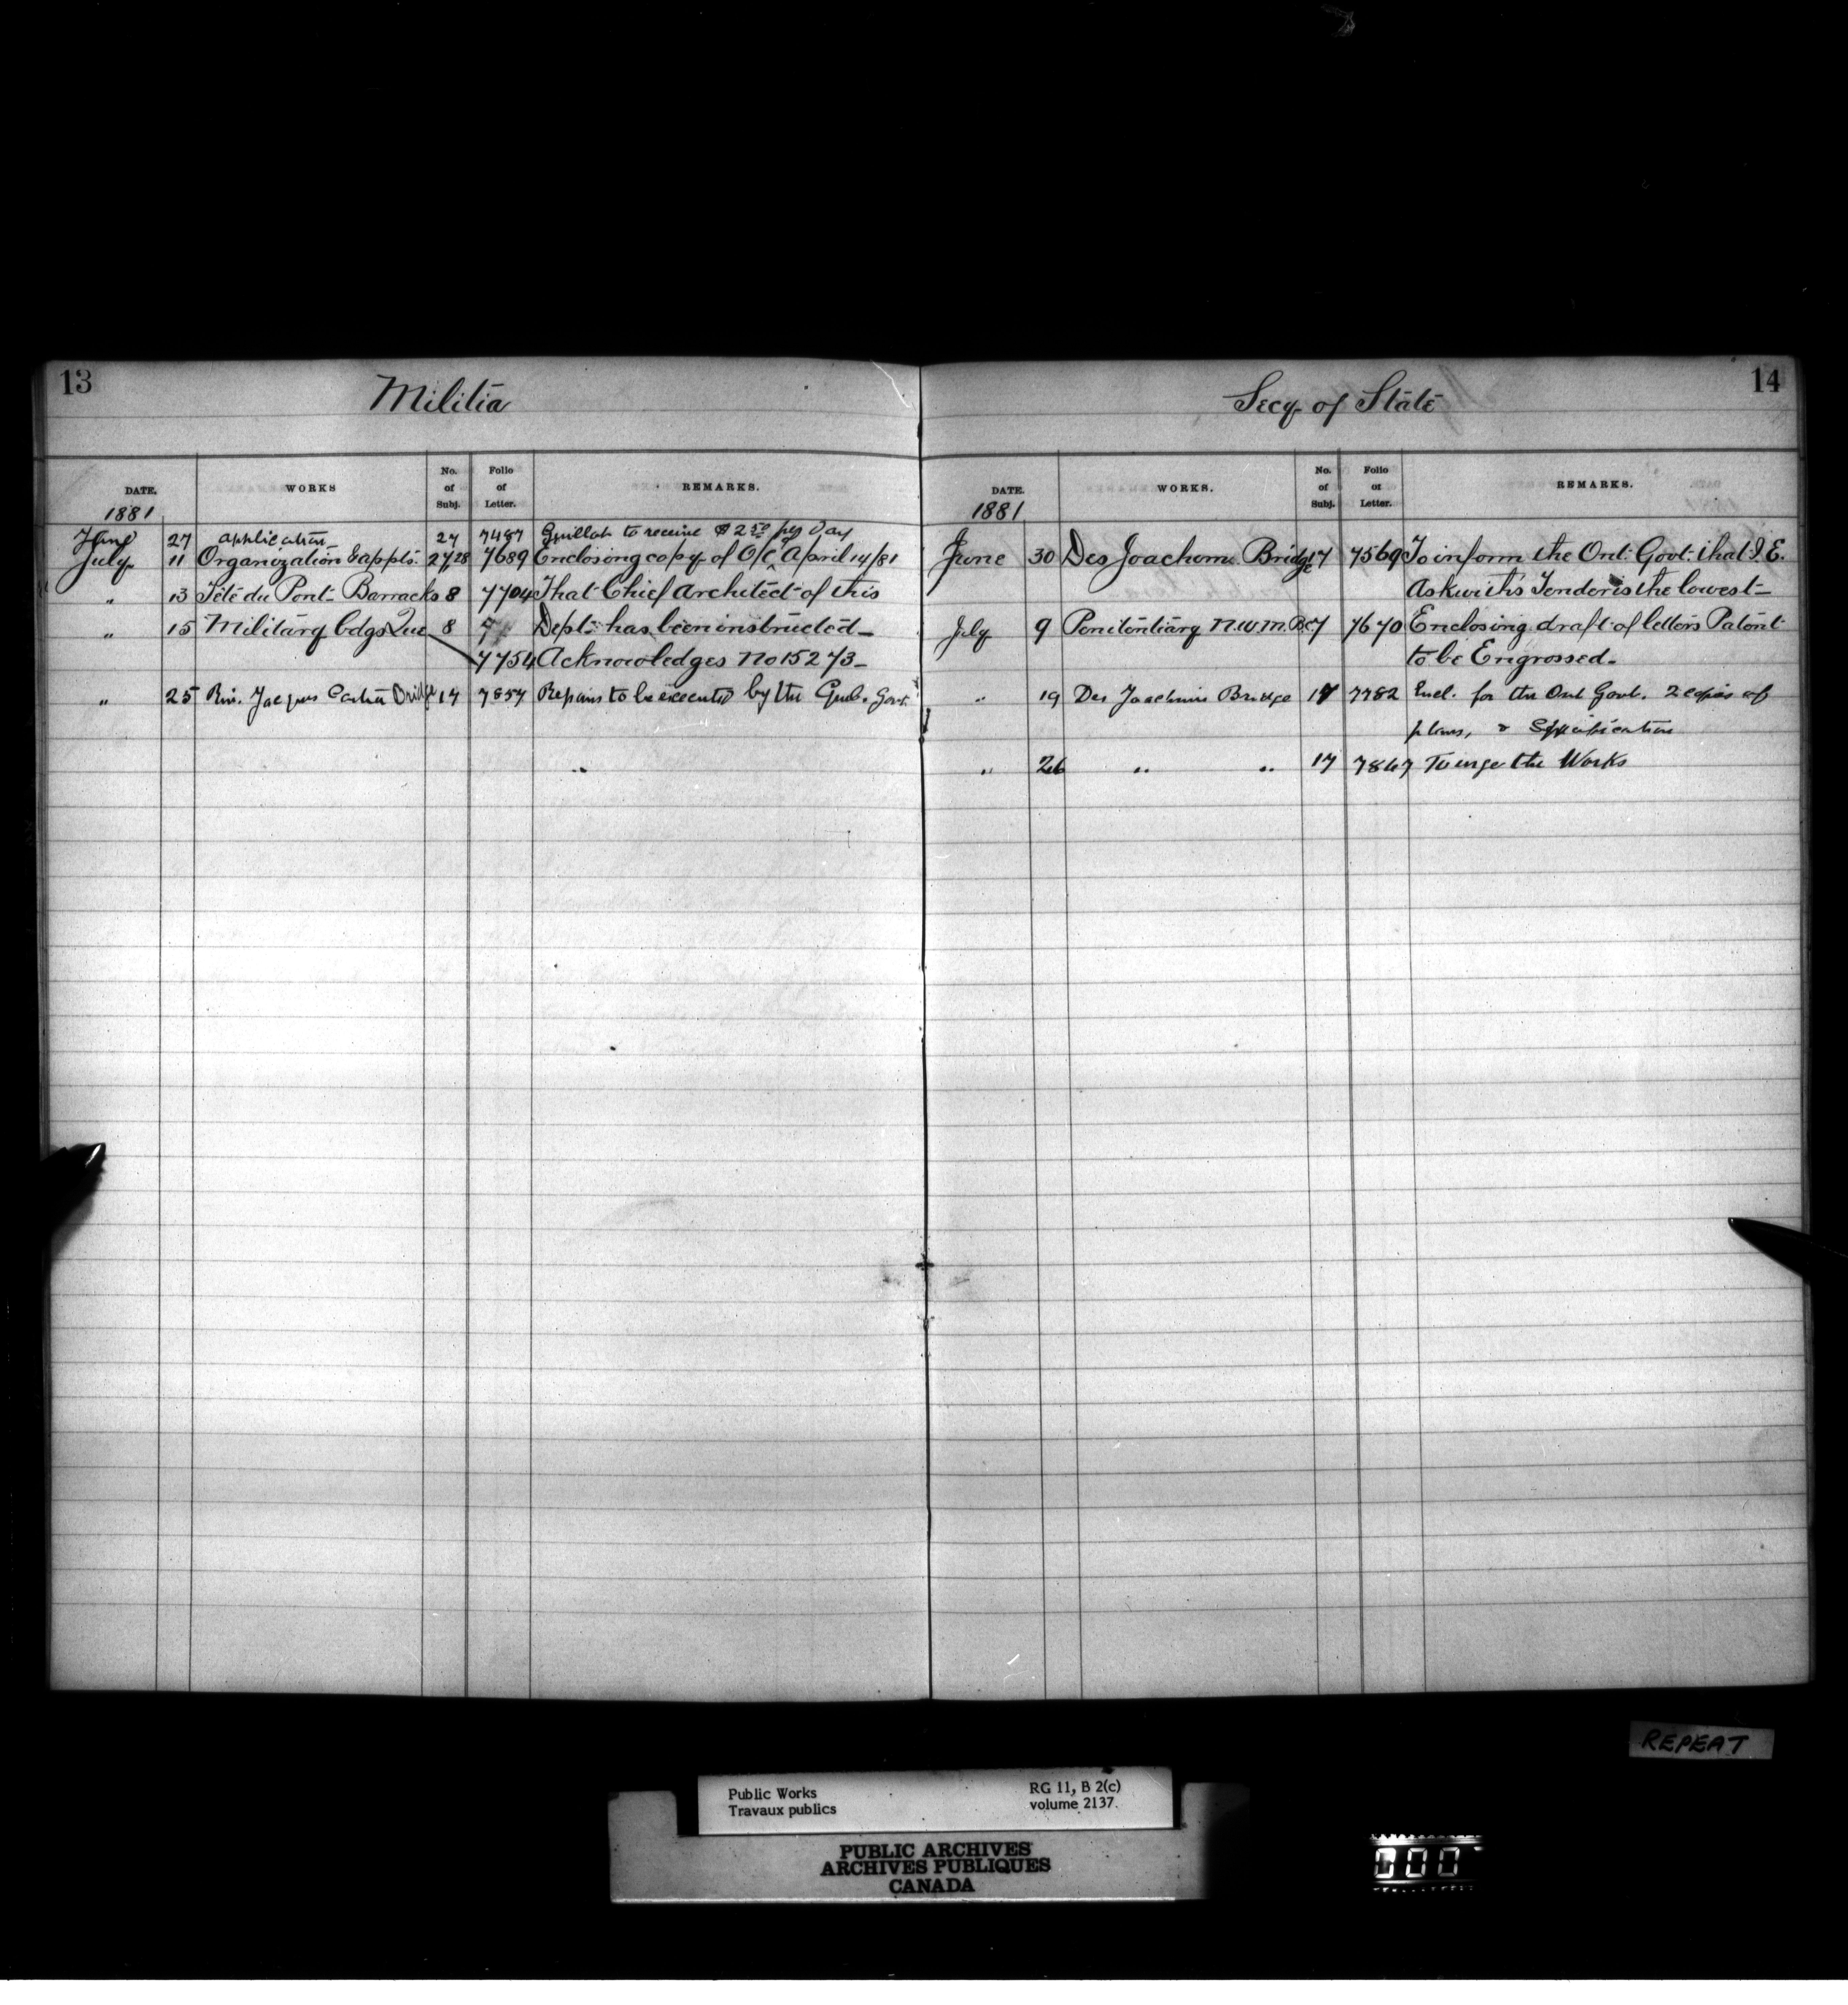 13
Militia
DATE. WORKS No. of Subj. Folio of Letter. REMARKS.
1881
June 27 application 27 7487 to receive $2 50 per Day
July 11 Organization & appts. 27/28 7689 Enclosing copy of O/C April 14/81
" 13 Tête du Pont Barracks 8 7704 That Chief Architect of this
" 15 Military bdgs Que 8 Dept. has been instructed
7754 Acknowledges No 15273
" 25 Riv. Jacques Cartier Bridge 17 7857 Repairs to be executed by the Queb. Govt.
14
Secy of State
DATE. WORKS. No. of Subj. Folio of Letter. REMARKS.
1881
June 30 Des Joachim Bridge 17 7569 To inform the Ont. Govt. that J. E.
Askwith's Tender is the lowest
July 9 Penitentiary N.W.M.B.C. 7 7670 Enclosing draft of letters Patent
to be Engrossed.
" 19 Des Joachims Bridge 17 7782 Encl. for the Ont Govt. 2 copies of
plans, & Specification
" 26 " " 17 7867 To urge the Works
REPEAT
Public Works
Travaux publics
RG 11, B 2(c)
volume 2137.
PUBLIC ARCHIVES
ARCHIVES PUBLIQUES
CANADA
000